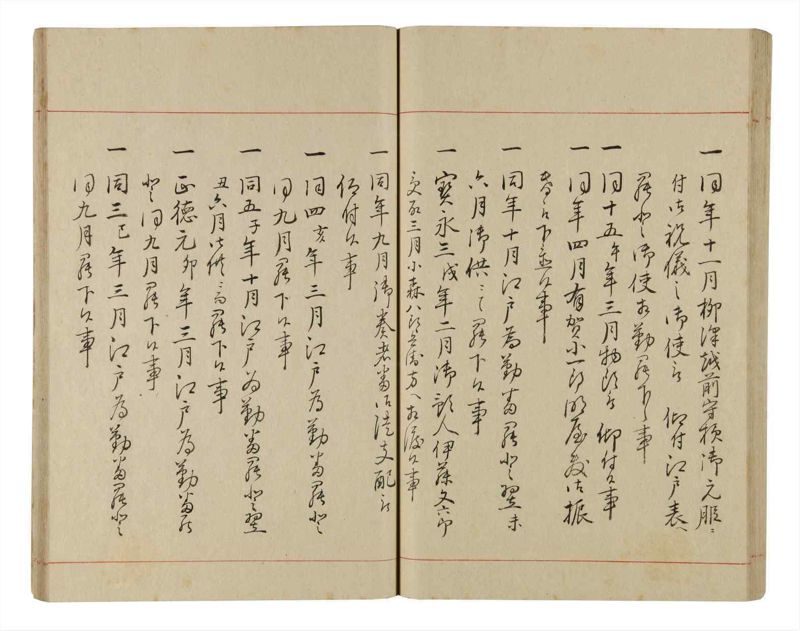 一同年十一月柳澤越前守様御元服ニ
付御祝儀之御使被 仰付江戸表へ
罷登御使相勤罷下候事
一同十五午年三月物頭被 仰付候事
一同年四月有賀小一郎明屋敷御振
替被下置候事
一同年十月江戸為勤番罷登翌未
六月御供ニ而罷下候事
一寳永三戌年二月御預人伊藤文六郎
三月小森八郎兵衛方へ相渡候事
一同年九月御奏者番御談支配被
仰付候事
一同四亥年三月江戸為勤番罷登
同九月罷下候事
一同五子年十月江戸為勤番罷登翌
丑六月御供ニ而罷下候事
一正徳元卯年三月江戸為勤番罷
登同九月罷下候事
一同三巳年三月江戸為勤番罷登
同九月罷下候事